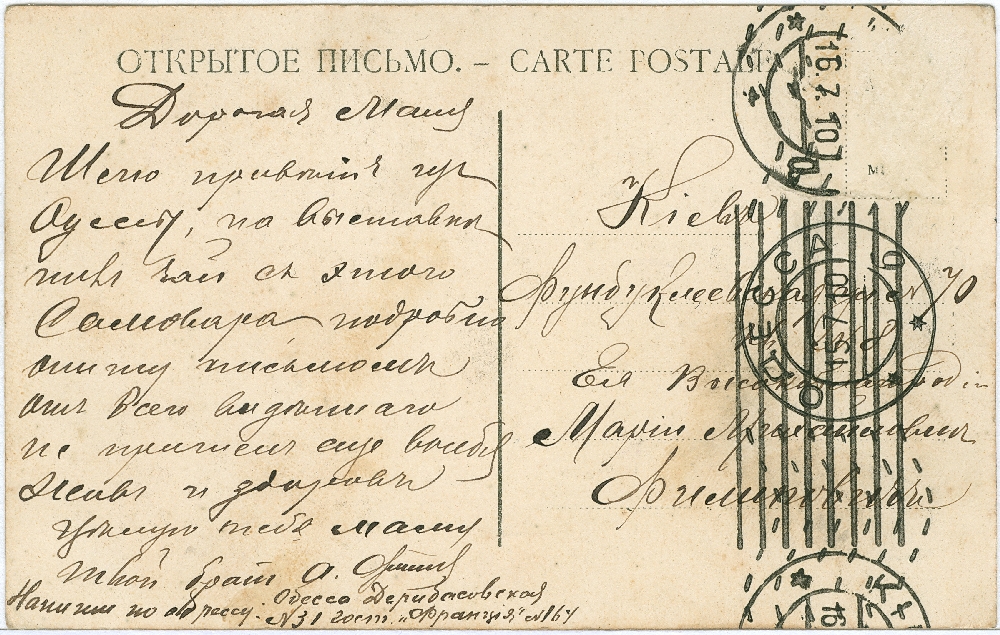 ОТКРЫТОЕ ПИСЬМО. – CARTE POSTALE
Дорогая Маня
Шлю приветъ изъ
Одессы, на выставкѣ
пилъ чай съ этого
Самовара подробно
опишу письмомъ
отъ всего видѣннаго
не пришелъ еще въ себя
Живъ и здоровъ
Цѣлую тебя маму
твой братъ А.
Напиши по адрессу. Одесса Дерибасовская
№31 гост. „Франція" №164
Кіевъ
Фундуклеевская № 70
Ея Высокоблагородію
Маріи
16.7.10
ОДЕССА
16